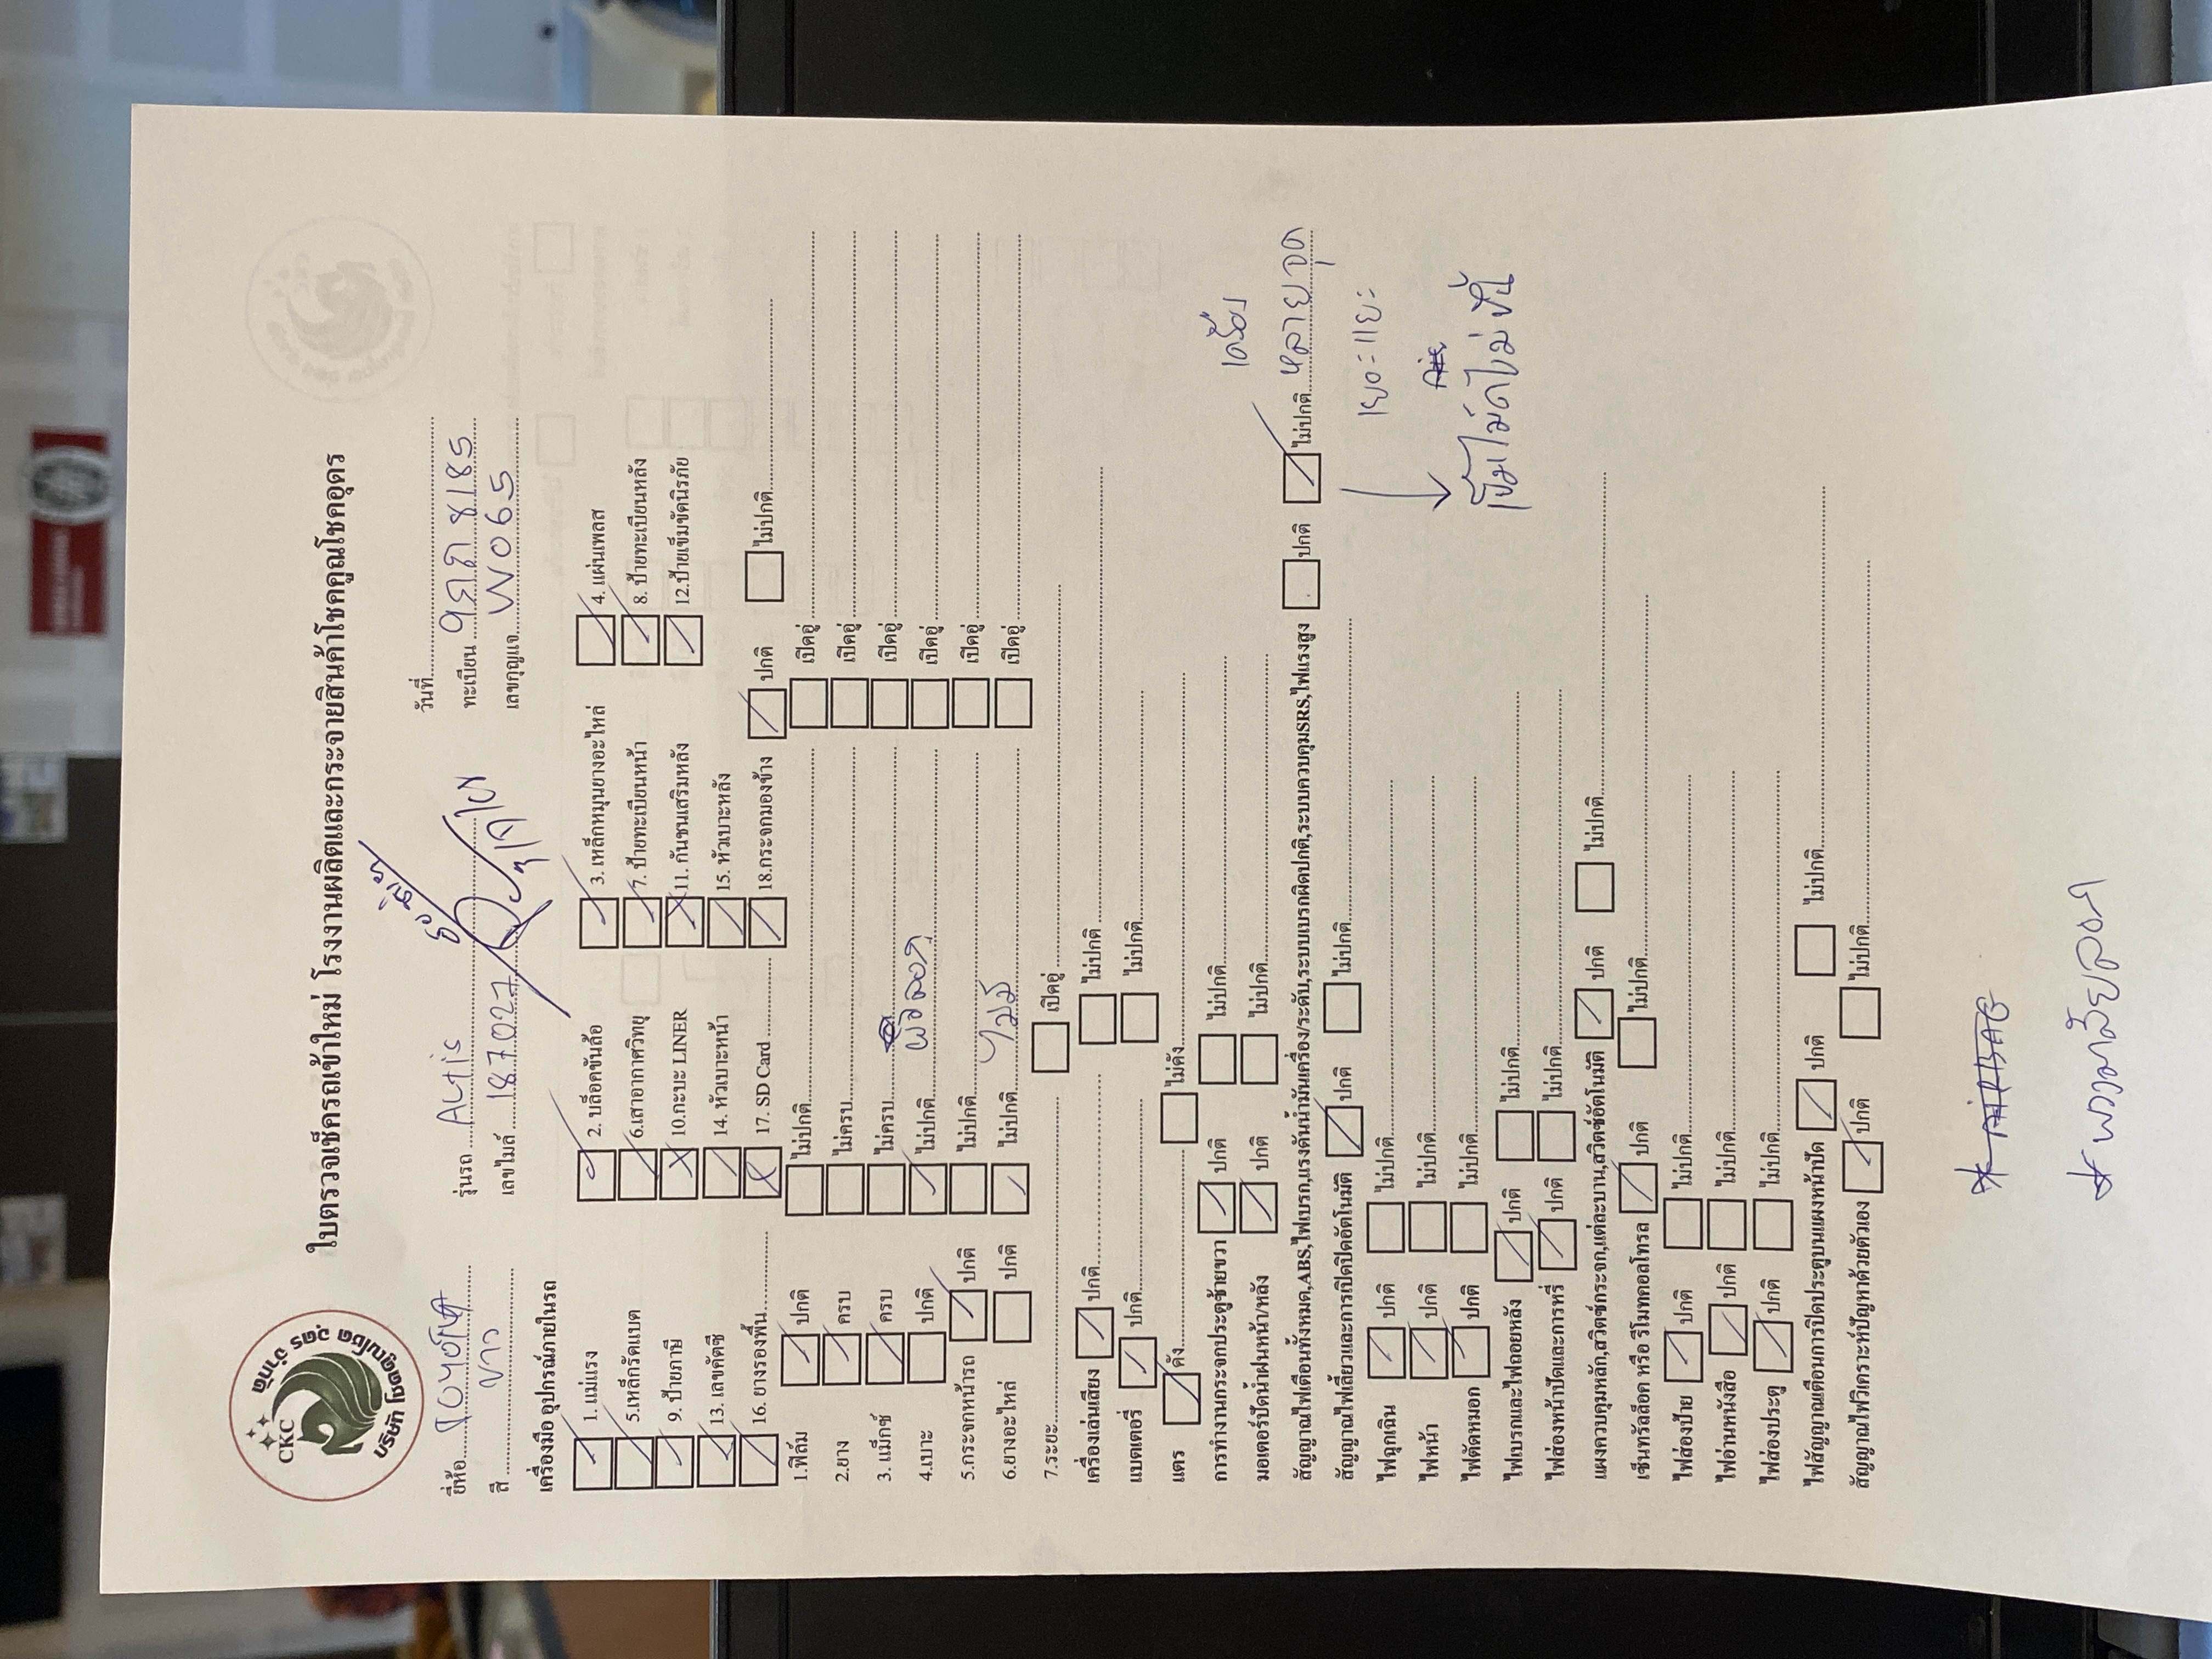 บริษัท คูณโชค อุดร จำกัด
CKC
ใบตรวจเช็ครถเข้าใหม่ โรงงานผลิตและกระจายสินค้าโชคคูณโชคอุดร
ยี่ห้อ รุ่นรถ Altis วันที่
สี ขาว เลขไมล์ 187027 ทะเบียน 8185
เลขกุญแจ W065
เครื่องมือ อุปกรณ์ภายในรถ
1. แม่แรง 2. บล็อคขันล้อ 3. เหล็กหมุนยางอะไหล่ 4. แผ่นเพลส
5.เหล็กรัดแบต 6.เสาอากาศวิทยุ 7. ป้ายทะเบียนหน้า 8. ป้ายทะเบียนหลัง
9. ป้ายภาษี 10.กะบะ LINER 11. กันชนเสริมหลัง 12.ป้ายเข็มขัดนิรภัย
13. เลขคัตซี 14. หัวเบาะหน้า 15. หัวเบาะหลัง
16. ยางรองพื้น 17. SD Card 18.กระจกมองข้าง ปกติ ไม่ปกติ
1.ฟิล์ม ปกติ ไม่ปกติ เปิดอู่
2.ยาง ครบ ไม่ครบ เปิดอู่
3. แม็กซ์ ครบ ไม่ครบ เปิดอู่
4.เบาะ ปกติ ไม่ปกติ เปิดอู่
5.กระจกหน้ารถ ปกติ ไม่ปกติ เปิดอู่
6.ยางอะไหล่ ปกติ ไม่ปกติ ไม่มี เปิดอู่
7.ระยะ เปิดอู่
เครื่องเล่นเสียง ปกติ ไม่ปกติ
แบตเตอรี่ ปกติ ไม่ปกติ
แตร ดัง ไม่ดัง
การทำงานกระจกประตูซ้ายขวา ปกติ ไม่ปกติ
มอเตอร์ปัดน้ำฝนหน้า/หลัง ปกติ ไม่ปกติ
สัญญาณไฟเตือนทั้งหมด,ABS,ไฟเบรก,แรงดันน้ำมันเครื่อง/ระดับ,ระบบเบรกผิดปกติ,ระบบควบคุมSRS,ไฟแรงสูง ปกติ ไม่ปกติ หลายจุด
เยอะแยะ
สัญญาณไฟเลี้ยวและการเปิดปิดอัตโนมัติ ปกติ ไม่ปกติ
ไฟฉุกเฉิน ปกติ ไม่ปกติ
เข็มไมล์ไม่ขึ้น
ไฟหน้า ปกติ ไม่ปกติ
ไฟตัดหมอก ปกติ ไม่ปกติ
ไฟเบรกและไฟถอยหลัง ปกติ ไม่ปกติ
ไฟส่องหน้าปัดและการหรี่ ปกติ ไม่ปกติ
แผงควบคุมหลัก,สวิตซ์กระจก,แต่ละบาน,สวิตซ์อัตโนมัติ ปกติ ไม่ปกติ
เซ็นทรัลล็อค หรือ รีโมทคอลโทรล ปกติ ไม่ปกติ
ไฟส่องป้าย ปกติ ไม่ปกติ
ไฟอ่านหนังสือ ปกติ ไม่ปกติ
ไฟส่องประตู ปกติ ไม่ปกติ
ไฟสัญญาณเตือนการปิดประตูบนแผงหน้าปัด ปกติ ไม่ปกติ
สัญญาณไฟวิเคราะห์ปัญหาด้วยตัวเอง ปกติ ไม่ปกติ
AIRBAG
พวงมาลัยลอก